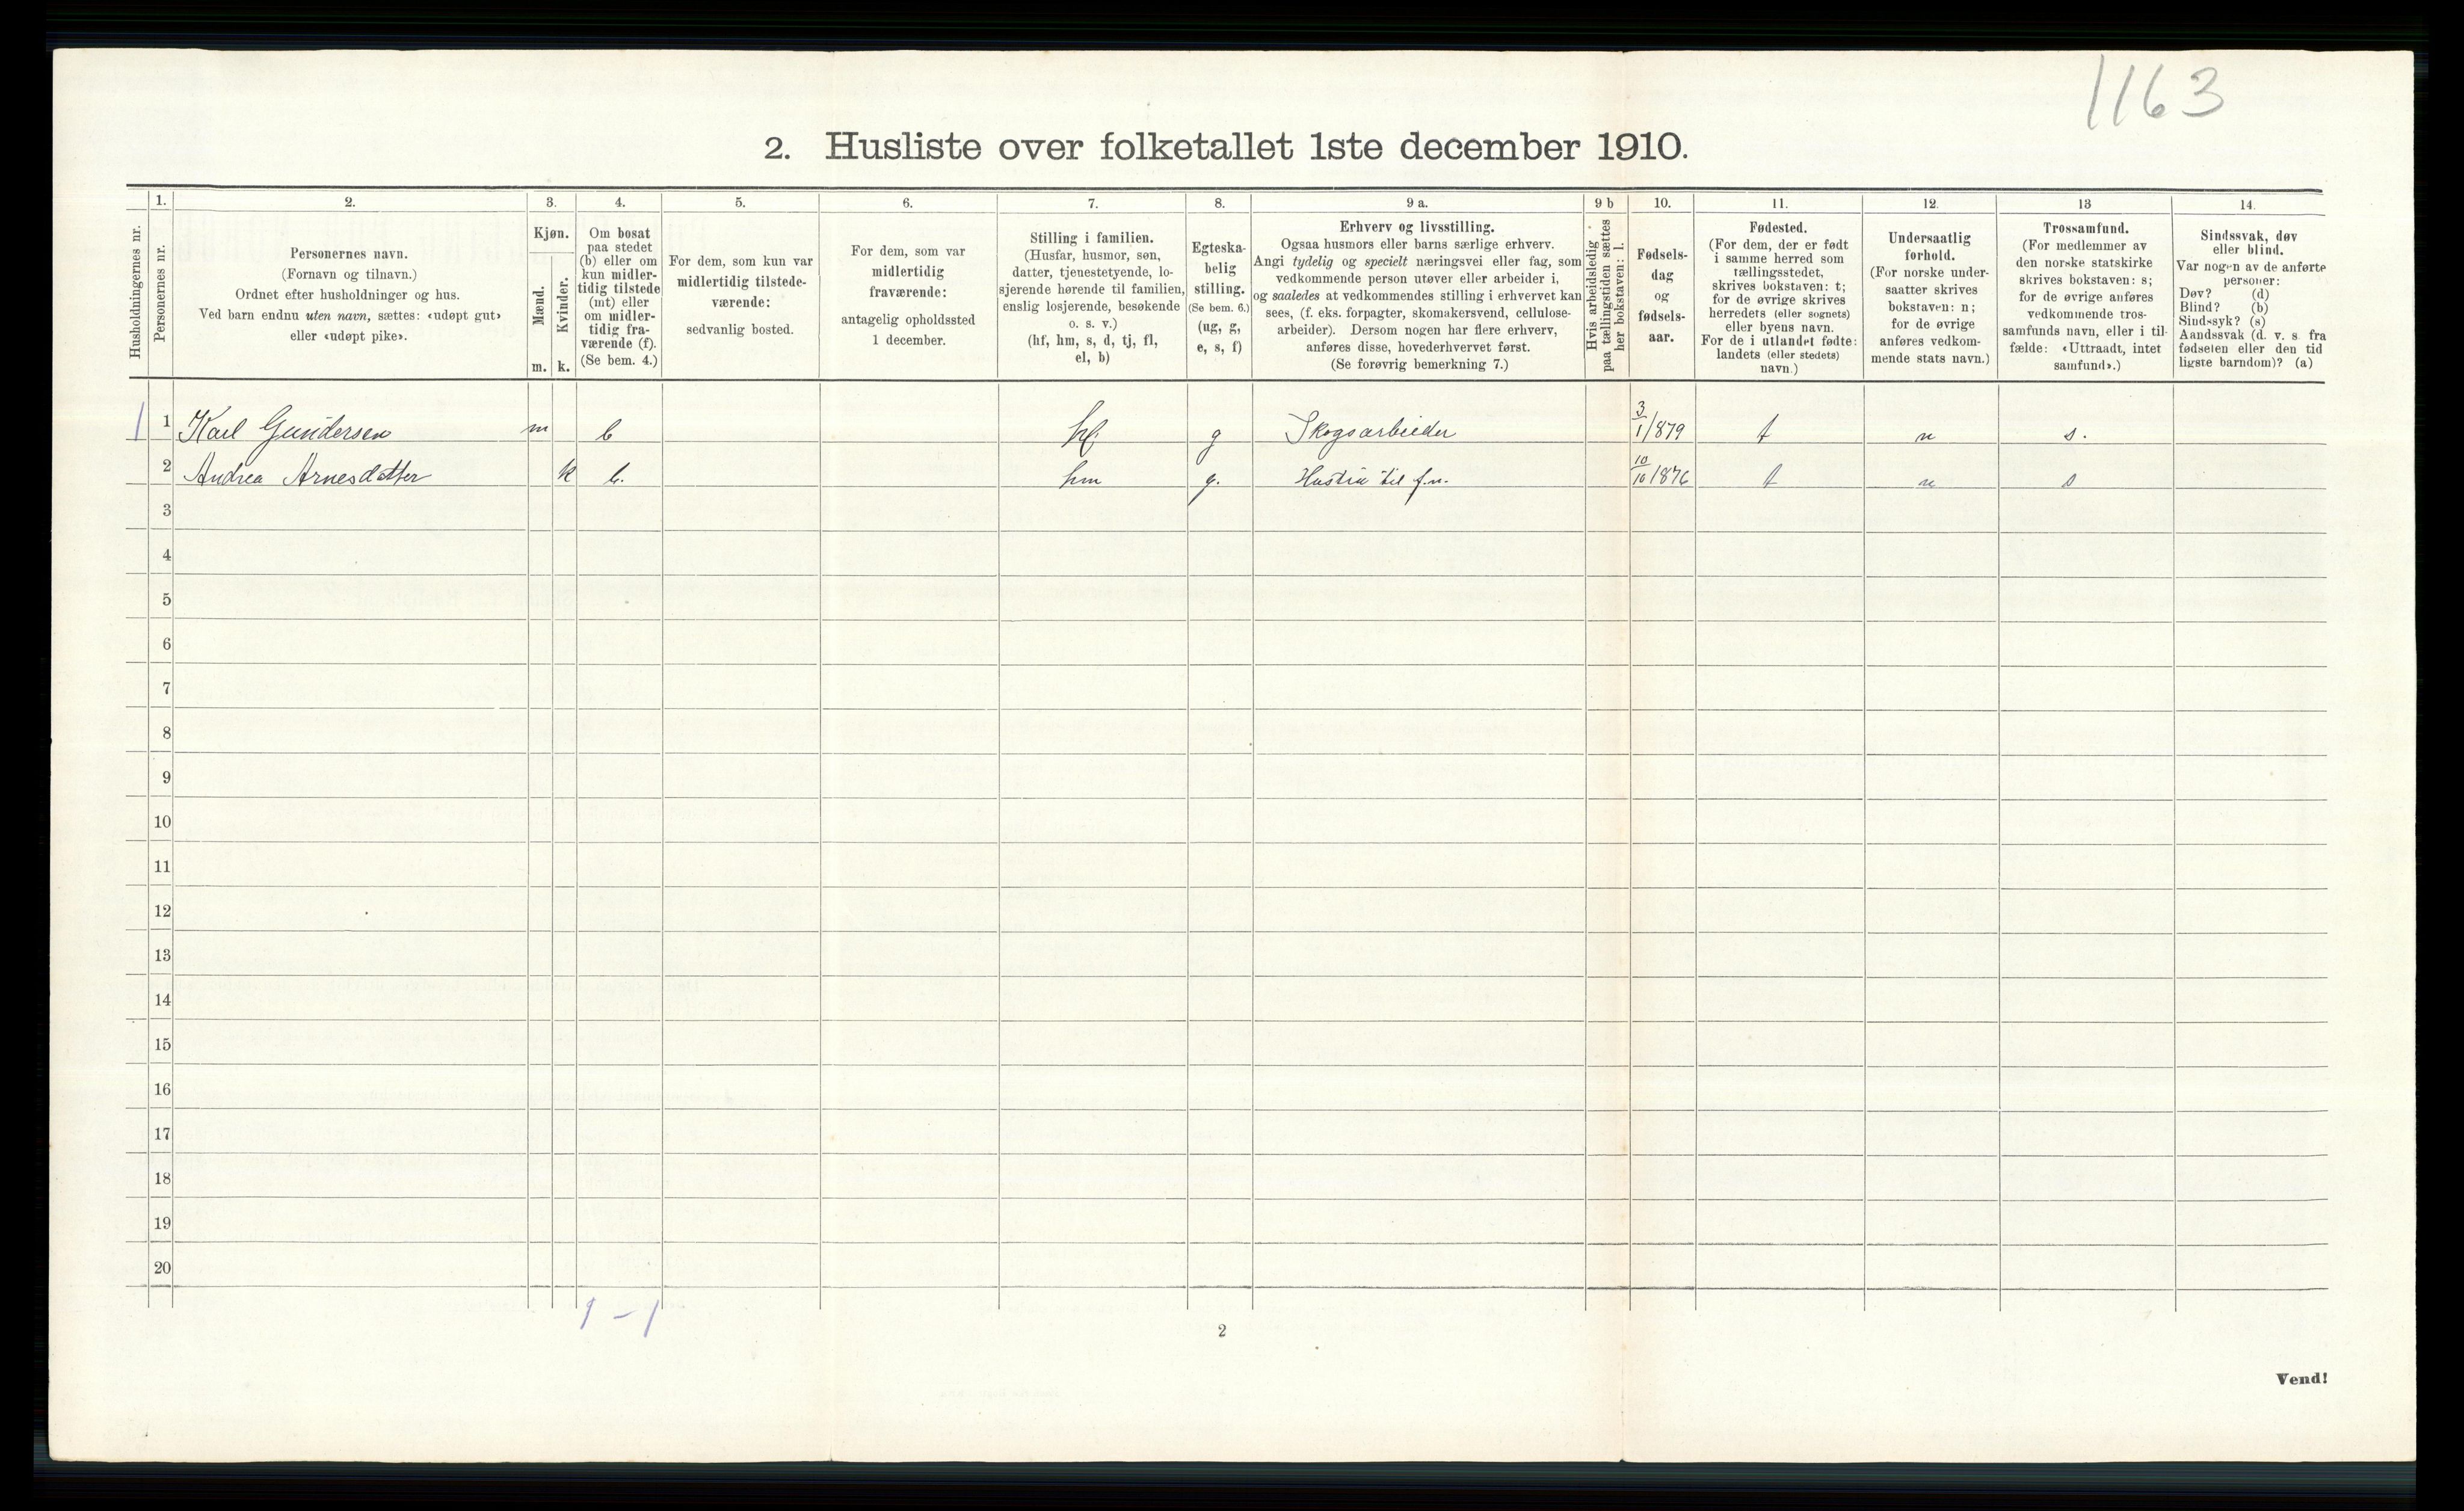 1163
2. Husliste over folketallet 1ste december 1910.
Husholdningernes nr.
1.
Personernes nr.
2.
Personernes navn.
(Fornavn og tilnavn.)
Ordnet efter husholdninger og hus.
Ved barn endnu uten navn, sættes: «udøpt gut»
eller «udøpt pike».
3.
Kjøn.
Mænd.
m.
Kvinder.
k.
4.
Om bosat
paa stedet
(b) eller om
kun midler-
tidig tilstede
(mt) eller
om midler-
tidig fra-
værende (f).
(Se bem. 4.)
5.
For dem, som kun var
midlertidig tilstede-
værende:
sedvanlig bosted.
6.
For dem, som var
midlertidig
fraværende:
antagelig opholdssted
1 december.
7.
Stilling i familien.
(Husfar, husmor, søn,
datter, tjenestetyende, lo-
sjerende hørende til familien,
enslig losjerende, besøkende
o. s. v.)
(hf, hm, s, d, tj, fl,
el, b)
8.
Egteska-
belig
stilling.
(Se bem. 6.)
(ug, g,
e, s, f)
9 a.
Erhverv og livsstilling.
Ogsaa husmors eller barns særlige erhverv.
Angi tydelig og specielt næringsvei eller fag, som
vedkommende person utøver eller arbeider i,
og saaledes at vedkommendes stilling i erhvervet kan
sees, (f. eks. forpagter, skomakersvend, cellulose-
arbeider). Dersom nogen har flere erhverv,
anføres disse, hovederhvervet først.
(Se forøvrig bemerkning 7.)
9 b
Hvis arbeidsledig
paa tællingstiden sættes
her bokstaven: l.
10.
Fødsels-
dag
og
fødsels-
aar.
11.
Fødested.
(For dem, der er født
i samme herred som
tællingsstedet,
skrives bokstaven: t;
for de øvrige skrives
herredets (eller sognets)
eller byens navn.
For de i utlandet fødte:
landets (eller stedets)
navn.)
12.
Undersaatlig
forhold.
(For norske under-
saatter skrives
bokstaven: n;
for de øvrige
anføres vedkom-
mende stats navn.)
13
Trossamfund.
(For medlemmer av
den norske statskirke
skrives bokstaven: s;
for de øvrige anføres
vedkommende tros-
samfunds navn, eller i til-
fælde: «Uttraadt, intet
samfund».)
14.
Sindssvak, døv
eller blind.
Var nogen av de anførte
personer:
Døv? (d)
Blind? (b)
Sindssyk? (s)
Aandssvak (d. v. s. fra
fødselen eller den tid
ligste barndom)? (a)
1 1 Karl Gundersen m b hf. g Skogsarbeider 3/1/879 t n s.
2 Andrea Arnesdatter k b. hm g. Hustru til f.n. 10/10/1876 t n s
3
4
5
6
7
8
9
10
11
12
13
14
15
16
17
18
19
20
1 - 1
2
Vend!